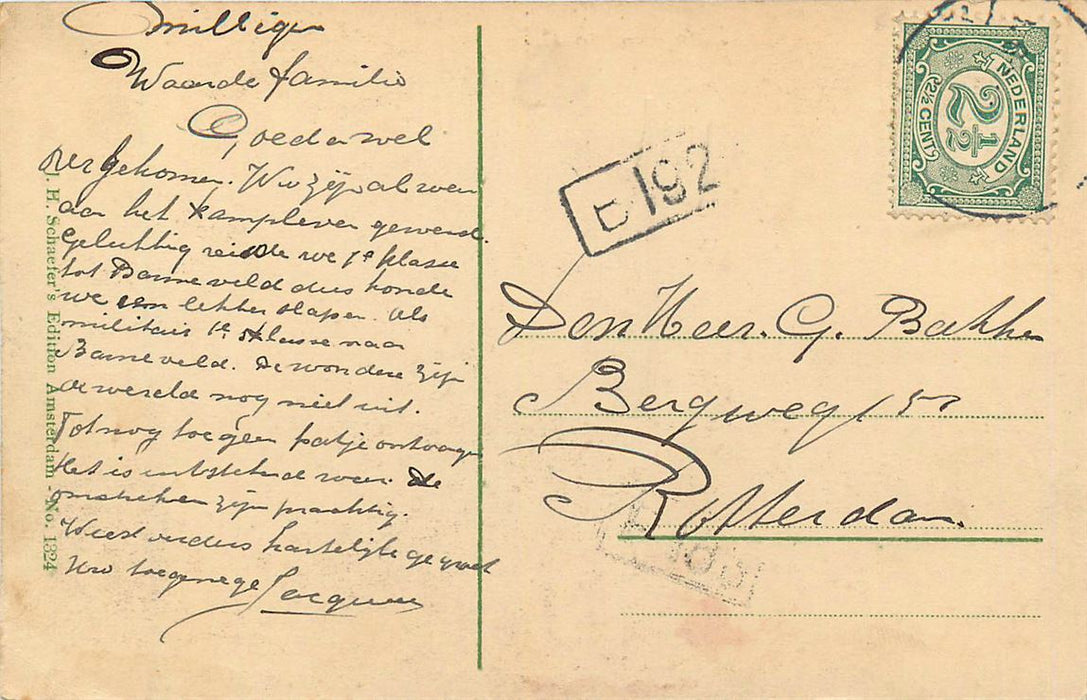 Milligen
Waarde familie
Goed en wel
hier gekomen. We zijn al weer
aan het kampleven gewend.
Gelukkig reisde we 1e klasse
tot Barneveld dus konde
we een lekker slapen. Als
militair 1e klasse naar
Barneveld. De wondere zijn
de wereld nog niet uit.
Tot nog toe geen patje ontvangen
Het is uitstekend weer. De
omstreken zijn prachtig.
Weest verders hartelijk gegroet
Uw toegenege
J. H. Schaefer's Edition Amsterdam - No. 1324
NEDERLAND
2½
2½ CENT
192
Den Heer. G. Bakker
Bergweg
Rotterdam.